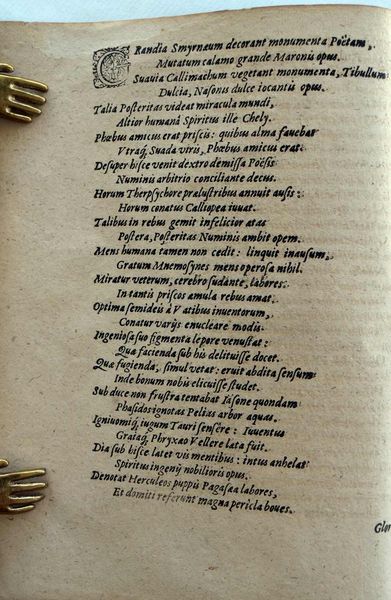 GRandia Smyrnæum decorant monumenta Poëtam,
Mutatum calamo grande Maronis opus.
Suavia Callimachum vegetant monumenta, Tibullum
Dulcia, Nasonis dulce iocantis opus.
Talia Posteritas videat miracula mundi,
Altior humanâ Spiritus ille Chely.
Phœbus amicus erat priscis: quibus alma favebat
Vtraq́; Suada viris, Phœbus amicus erat.
Desuper hisce venit dextro demissa Poësis
Numinis arbitrio conciliante decus.
Horum Therpsychore prælustribus annuit ausis:
Horum conatus Calliopea iuvat.
Talibus in rebus gemit infelicior ætas
Postera, Posteritas Numinis ambit opem.
Mens humana tamen non cedit: linquit inausum,
Gratum Mnemosynes mens operosa nihil.
Miratur veterum, cerebro sudante, labores:
In tantis priscos æmula rebus amat.
Optima semideis à Vatibus inventorum,
Conatur varijs enucleare modis.
Ingeniosa suo figmenta lepore venustat:
Qua facienda sub his delituisse docet.
Quæ fugienda, simul vetat: eruit abdita sensum:
Inde bonum nobis elicuisse studet.
Sub duce non frustra tentabat Iasone quondam
Phasidos ignotas Pelias arbor aquas.
Ignivomiq́; iugum Tauri sensêre: Iuventus
Grataq́; Phryxæo Vellere lata fuit.
Dia sub hisce latet vis mentibus: intus anhelat
Spiritus ingenij nobilioris opus.
Denotat Herculeos puppis Pagasæa labores,
Et domiti referunt magna pericla boves.
Glor